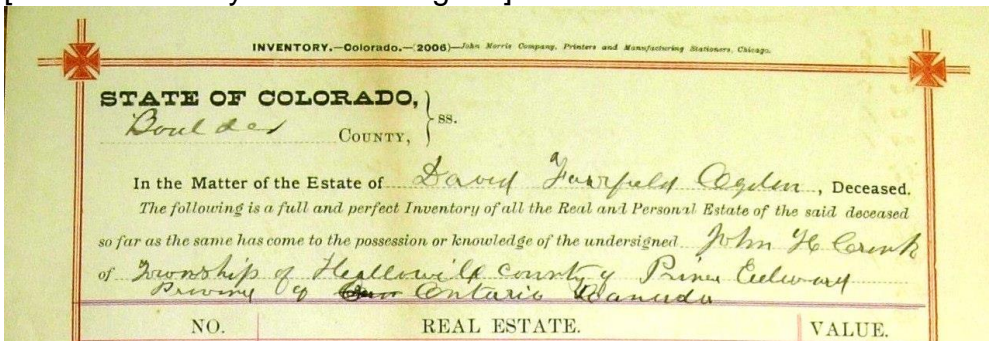 INVENTORY.—Colorado.—(2006)—John Morris Company, Printers and Manufacturing Stationers, Chicago.
STATE OF COLORADO,
Boulder COUNTY, } ss.
In the Matter of the Estate of David Fairfield Ogden, Deceased.
The following is a full and perfect Inventory of all the Real and Personal Estate of the said deceased
so far as the same has come to the possession or knowledge of the undersigned John H Cronk
of Township of Hallowell county of Prince Edward
Province of Ontario Canada
NO. REAL ESTATE. VALUE.